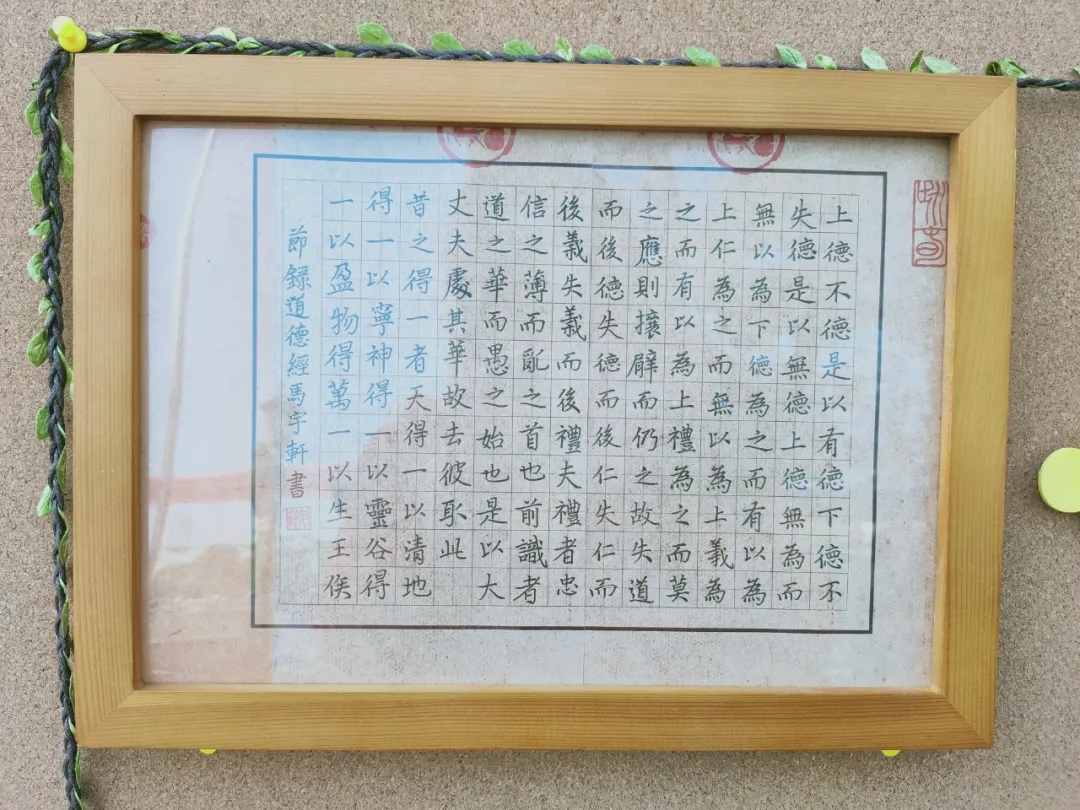 上德不德是以有德下德不
失德是以無德上德無為而
無以為下德為之而有以為
上仁為之而無以為上義為
之而有以為上禮為之而莫
之應則攘臂而仍之故失道
而後德失德而後仁失仁而
後義失義而後禮夫禮者忠
信之薄而亂之首也前識者
道之華而愚之始也是以大
丈夫處其華故去彼取此
昔之得一者天得一以清地
得一以寧神得一以靈谷得
一以盈物得萬一以生王侯
節錄道德經馬宇軒書